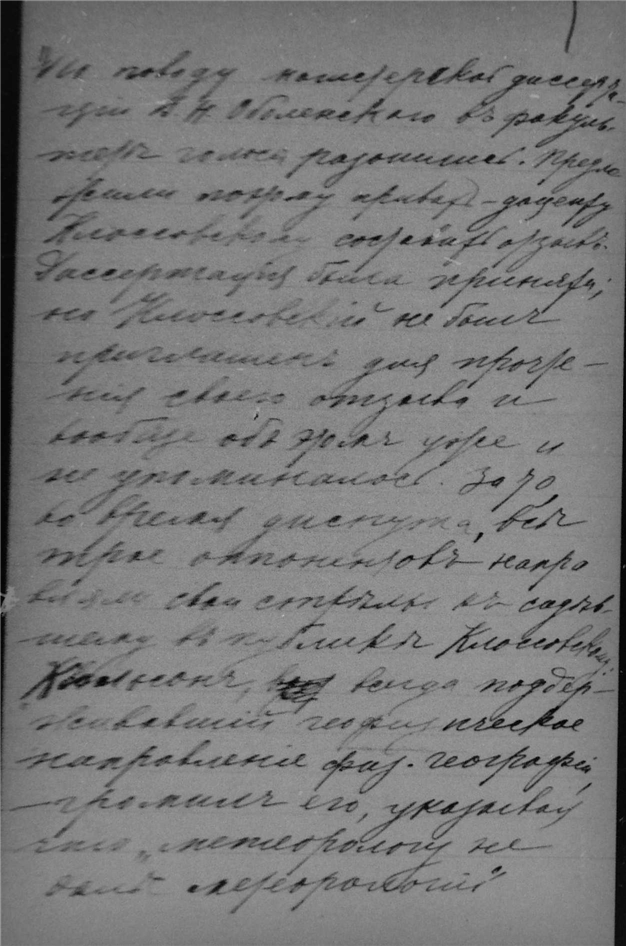 По поводу магистерской диссерта-
ціи В. Н. Оболенского въ факуль-
тетѣ голоса разошлись. Предло
жили поэтому приватъ-доценту
Клоссовскому составить отзывъ.
Диссертація была принята;
но Клоссовскій не былъ
приглашенъ для прочте-
нія своего отзыва и
вообще объ этомъ уже и
не упоминалось. За то,
во время диспута, всѣ
трое оппонентовъ напра
вляли свои стрѣлы въ сидѣв-
шему въ публикѣ Клоссовскому:
всегда поддер-
живавшій геофизическое
направленіе физ. географіи,
– громилъ его, указывая
что „метеорологу не
метеорологіи"